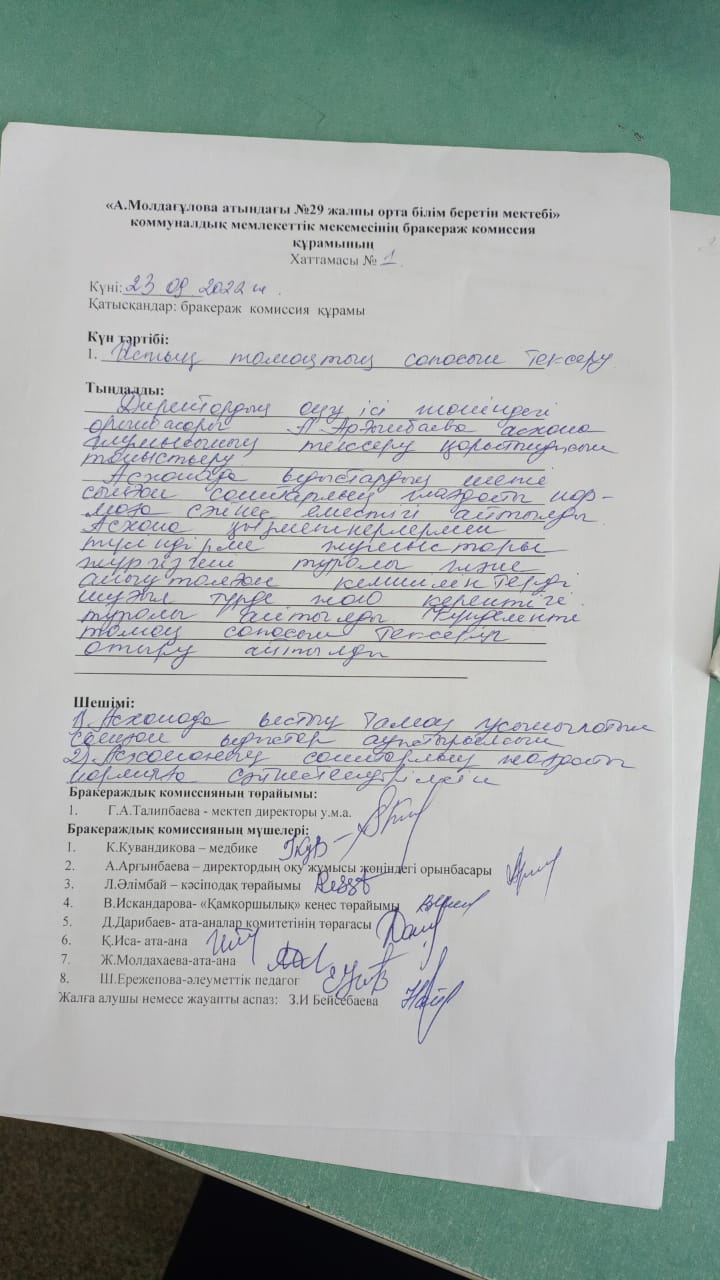 «А.Молдағұлова атындағы №29 жалпы орта білім беретін мектебі»
коммуналдық мемлекеттік мекемесінің бракераж комиссия
құрамының
Хаттамасы № 1.
Күні: 23 09 2022 ж.
Қатысқандар: бракераж комиссия құрамы
Күн тәртібі:
1. Ыстық тамақтың сапасын тексеру
Тыңдалды:
Директордың оқу ісі жөніндегі
орынбасары А Арғынбаева асхана
жұмысының тексеру қорытындысын
таныстыру
Асханада ыдыстардың шеті
сынған санитарлық жағдайы нор-
маға сәйкес еместігі айтылды
Асхана қызметкерлермен
түсіндірме жұмыстары
жүргізгені туралы және
анықталған кемшіліктерді
шұғыл түрде жою керектігі
туралы айтылды Күнделікті
тамақ сапасын тексеріп
отыру айтылды
Шешімі:
1) Асханада ыстық тамақ ұсынылатын
сынған ыдыстар ауыстырылсын
2) Асхананың санитарлық жағдайы
нормаға сәйкестендірілсін
Бракераждық комиссияның төрайымы:
1. Г.А.Талипбаева - мектеп директоры у.м.а.
Бракераждық комиссияның мүшелері:
1. К.Кувандикова – медбике
2. А.Арғынбаева – директордың оқу жұмысы жөніндегі орынбасары
3. Л.Әлімбай – кәсіподақ төрайымы
4. В.Искандарова- «Қамқоршылық» кеңес төрайымы
5. Д.Дарибаев- ата-аналар комитетінің төрағасы
6. Қ.Иса- ата-ана
7. Ж.Молдахаева-ата-ана
8. Ш.Ережепова-әлеуметтік педагог
Жалға алушы немесе жауапты аспаз: З.И Бейсебаева